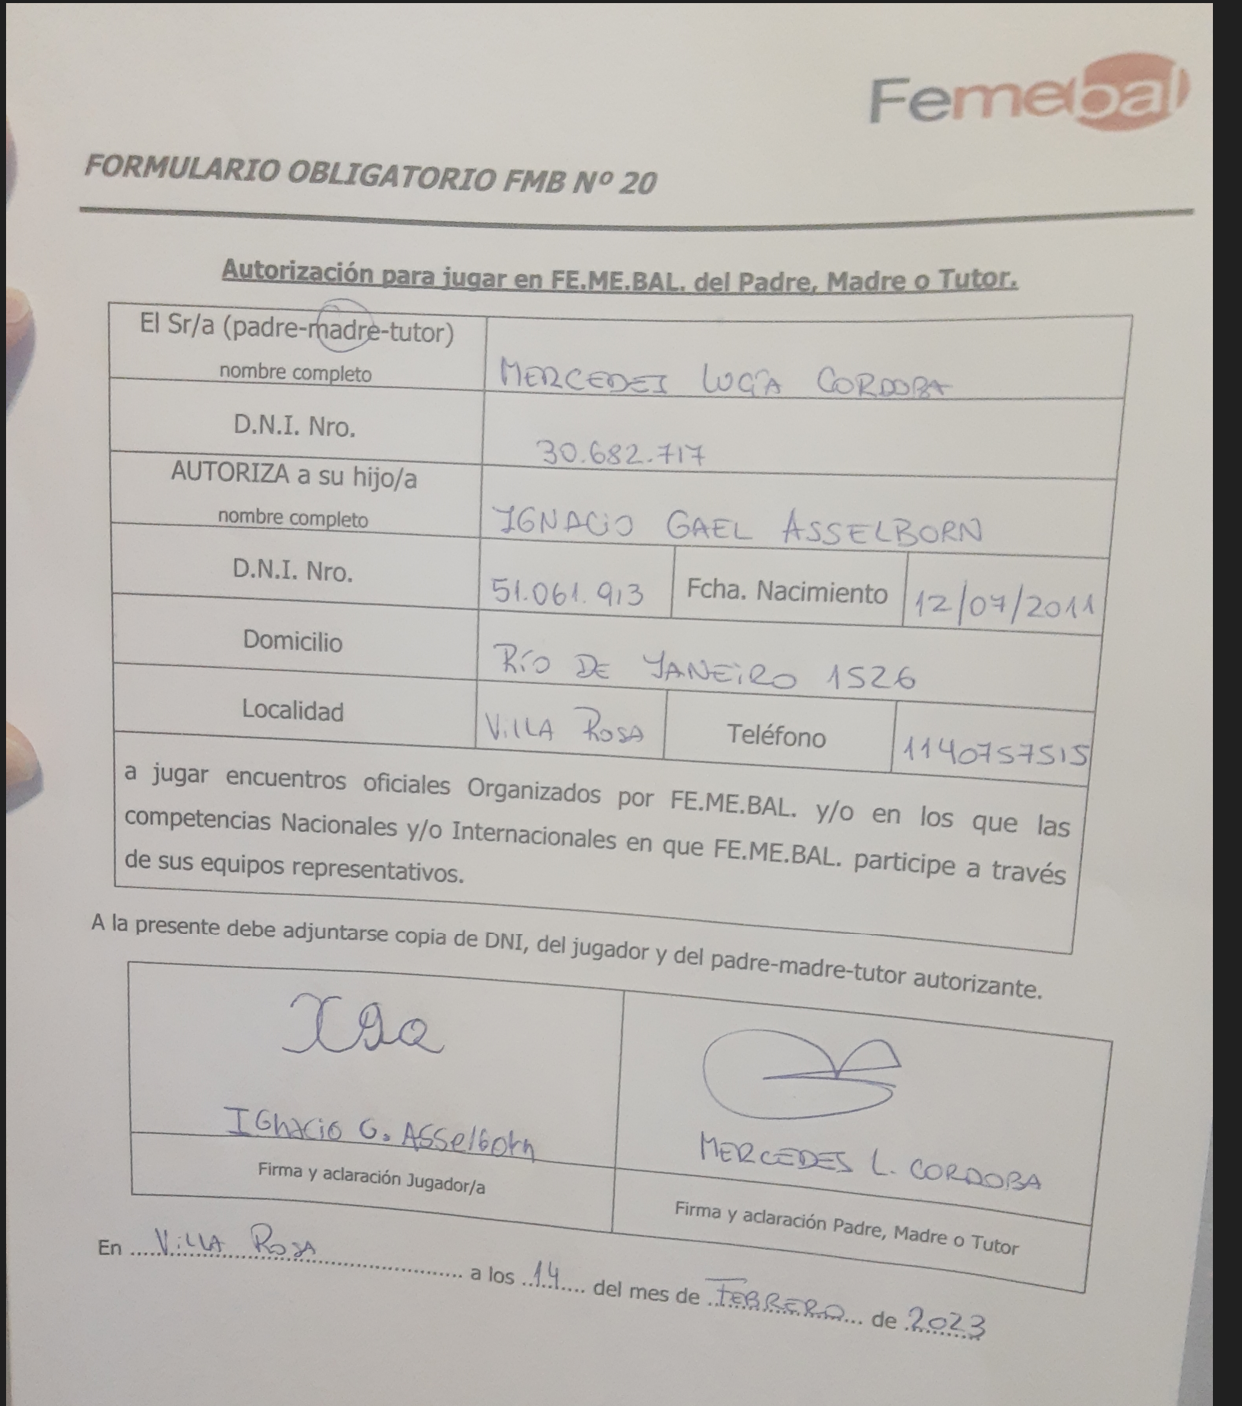 Femebal
FORMULARIO OBLIGATORIO FMB Nº 20
Autorización para jugar en FE.ME.BAL. del Padre, Madre o Tutor.
El Sr/a (padre-madre-tutor)
nombre completo
MERCEDES LUCÍA CORDOBA
D.N.I. Nro.
30.682.717
AUTORIZA a su hijo/a
nombre completo
IGNACIO GAEL ASSELBORN
D.N.I. Nro.
51.061.913
Fcha. Nacimiento
12/07/2011
Domicilio
RÍO DE JANEIRO 1526
Localidad
VILLA ROSA
Teléfono
1140757515
a jugar encuentros oficiales Organizados por FE.ME.BAL. y/o en los que las
competencias Nacionales y/o Internacionales en que FE.ME.BAL. participe a través
de sus equipos representativos.
A la presente debe adjuntarse copia de DNI, del jugador y del padre-madre-tutor autorizante.
IGnacio G. ASSelborn
Firma y aclaración Jugador/a
MERCEDES L. CORDOBA
Firma y aclaración Padre, Madre o Tutor
En VILLA ROSA a los 14 del mes de FEBRERO de 2023